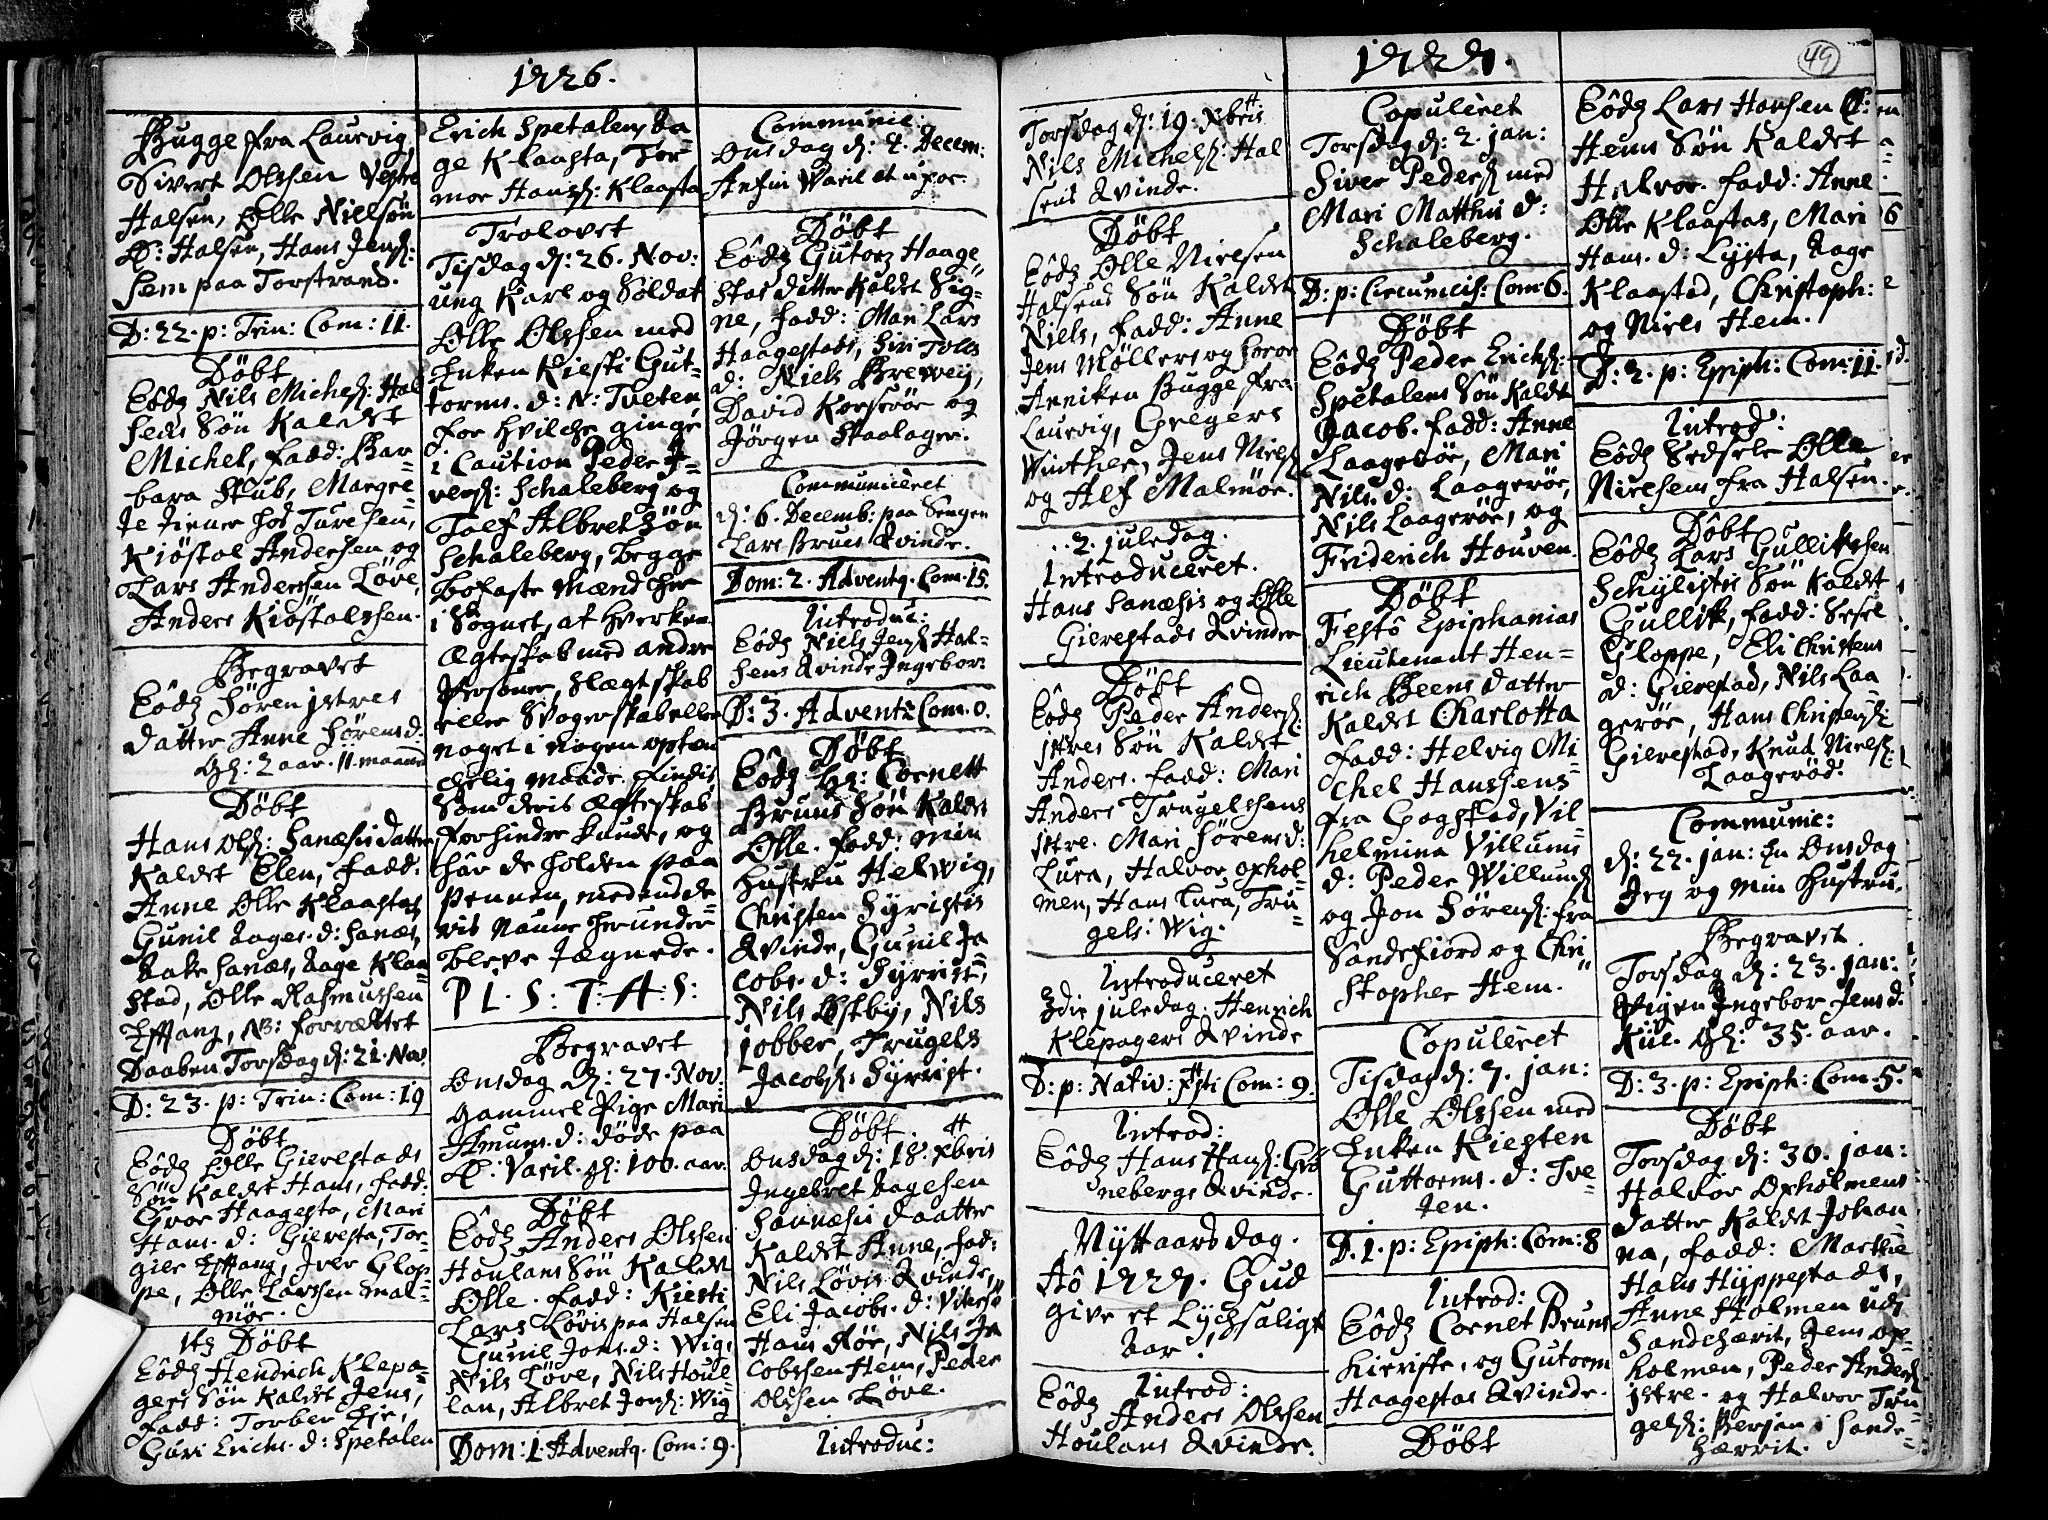 1726.
Bugge fra Laurvig,
Sivert Olssen Vestre
Halsen, Olle Nielssøn
Ø: Halsen, Hans Jens:
Sem paa Torstrand.
D: 22. p: Trin: Com: 11.
Døbt
Eôdẽ Nils Michels: Hal
sens Søn Kaldet
Michel, fadd: Bar-
bara Skub, Margre-
te tiener hos Turesen,
Kiøstol Andersen og
Lars Anderssen Løve,
Anders Kiøstolssen.
Begravet
Eôdẽ Søren istres
datter Anne Sørens d:
Gl: 2 aar. 11. maaned
Døbt
Hans Ols: Sanæsis datter
Kaldet Elen, fadd:
Anne Olle Klaastas
Gunil Aages. d: Sanæs,
Aake Sanæs, Aage Klaa=
stad, Olle Rasmussen
Effang, NB: forrættet
Daaben Torsdag d: 21. Nov:
D: 23. p: Trin: Com: 19
Døbt
Eôdẽ Olle Gierestads
Søn Kaldet Hans, fadd:
Gvor Haagesta, Mari
Hans. d: Gieresta, Tor-
gier Effang, Iver Glop-
pe, Olle Larssen Mal-
møe.
Døbt
Eôdẽ Hendrich Klepa=
gers Søn Kaldet Jens,
fadd: Torber Hie,
Guri Erichs. d: Spetalen
Erich Spetalen, Aa
ge Klaasta, Tor
moe Hans: Klaasta
Trolovet
Tisdag d: 26. Nov:
ung Karl og Soldat
Olle Olssen med
Enken Kiesti Gut-
torms. d: N: Tveten
for hvilche ginge
i Caution Peder I-
vers: Schaleberg og
Toef Albretsøn
Schaleberg, begge
bofaste Mænd her
i Sognet, at hverken
Ægteskab med andre
Personer, Slægtskab
eller Svogerskab eller
noget i nogen opten
chelig maade findis
som deris Ægteskab
forhindre kunde, og
har de holden paa
Pennen, med endda
vis Naune herunder
bleve tegnede.
P L. S: T: A: S:
Begravet
Onsdag d: 27. Nov:
gammel Pige Mari
Amuns. d: døde paa
Ø: Varil. gl: 100. aar.
Døbt
Eôdẽ Anders Olssen
Houlans Søn Kaldet
Olle. fadd: Kiesti
Lars Løvis paa Halsen
Gunil Jons. d: Wig,
Nils Løve, Nils Hou=
lan, Albret Jons: Wig
Dom: 1. Adventq. Com: 9.
Communic:
Onsdag d: 4. Decem:
Anfin Waril et uxor.
Døbt
Eôdẽ Gutorm Haage
stas datter Kaldet Sig=
ne, fadd: Mari Lars
Haagestads, Siri Tolls
d: Niels Brewej,
David Korserøe og
Jørgen Skaalager:
Communiceret
d: 6. Decemb: paa Sengen
Lars Brues Qvinde.
Dom: 2. Adventq. Com. 15.
Introduc:
Eôdẽ Niels Jens: Hal-
sens Qvinde Ingebor:
D: 3. Advent: Com: 0.
Døbt
Eôdẽ Hr: Cornett
Bruns Søn Kaldet
Olle. fadd: Min
hustru Helwig,
Christen Hyristis
Qvinde, Gunil Ja
cobs. d: Hyrrist,
Nils Østby, Nils
jobber, Trugels
Jacobs: Hyrrist.
Døbt.
Onsdag d: 18. Xbris
Ingebret Aagesen
Sannæsis daatter
Kaldet Anne, fad:
Nils Løvis Qvinde,
Eli Jacobs. d: Vitersø
Hans Røe, Nils Ja
cobssen Hem, Peder
Olssen Løve.
Introduc:
1727.
49
Torsdag d: 19. Xbris
Nils Michels: Hal
sens Qvinde.
Døbt
Eôdẽ Olle Nielsen
Halsens Søn Kaldet
Niels, fadd: Anne
Jens Møllers og Soror
Anniken Bugge fra
Laurvig, Gregers
Winther, Jens Niels:
og Alf Malmøe.
2. juledag.
Introduceret.
Hans Sanæsis og Olle
Gierestads Qvinder
Døbt
Eôdẽ Peder Anders:
istres Søn Kaldet
Anders. fadd: Mari
Anders Trugelssens
istre. Mari Sørens d:
Lura, Halvor oxhol
men, Hans Lura, Tru=
gels: Wig.
Introduceret
3die juledag. Henrich
Klepagers Qvinde
D: p: Nativ: Xsti Com: 9.
Introd:
Eôdẽ Hans Hans: Grø
nebergs Qvinde.
Nyttaarsdag.
Aô 1727. Gud
give et Lychsaligt
Aar!
Introd:
Eôdẽ Anders Olssen
Houlans Qvinde.
Copuleret
Torsdag d: 2. jan:
Siver Peders: med
Mari Matthis d:
Schaleberg.
D: p: Circumcis: Com: 6.
Døbt
Eôdẽ Peder Erichs:
Spetalens Søn Kaldet
Jacob. fadd: Anne
Laagerøe, Mari
Nils. d: Laagerøe,
Nils Laagerøe, og
Friderich Houven.
Døbt
Festô Epiphanias
Lieutenant Hen=
rich Beens datter
Kaldet Charlotta
fadd: Helvig Mi
chel Hanssens
fra Gogstad, Vil
helmina Villums
d: Peder Willums:
og Jon Sørens: fra
Sandefiord og Chri=
stopher Hem.
Copuleret
Tisdag d: 7. jan:
Olle Olssen med
Enken Kiesten
Guttorms. d: Tve
ten.
D. 1. p: Epiph: Com: 8
Introd:
Eôdẽ Cornet Bruns
Kieriste, og Gutorm
Haagestas Qvinde.
Døbt
Eôdẽ Lars Hansen Ø:
Hems Søn Kaldet
Halvor. fadd: Anne
Olle Klaastas, Mari
Hans. d: Lysta, Aage
Klaastad, Christoph:
og Niels Hem.
D: 2. p: Epiph: Com: 11.
Introd:
Eôdẽ Sedsele Olle
Nielsens fra Halsen.
Døbt
Eôdẽ Lars Gullikssen
Schylistis Søn Kaldet
Gullik, fadd: Sesel
Gloppe, Eli Christens
d: Gierestad, Nils Laa
gerøe, Hans Christens:
Gierestad, Knud Niels:
Laagerød.
Communic:
d: 22. jan: En Onsdag
Jeg og Min Hustru.
Begravet
Torsdag d: 23. jan:
Pigen Ingebor Jens d:
Kiie. Gl: 35. aar.
D: 3. p: Epiph: Com. 5.
Døbt
Torsdag d: 30. jan:
Halvor Oxholmens
datter Kaldet Johan
na, fadd: Marthe
Hans Hyppestads,
Anne Holmen udi
Sandehærit, Jens ox-
holmen, Peder Anders:
istre. og Halvor Tru-
gels: Bersan i Sande-
hærrit.